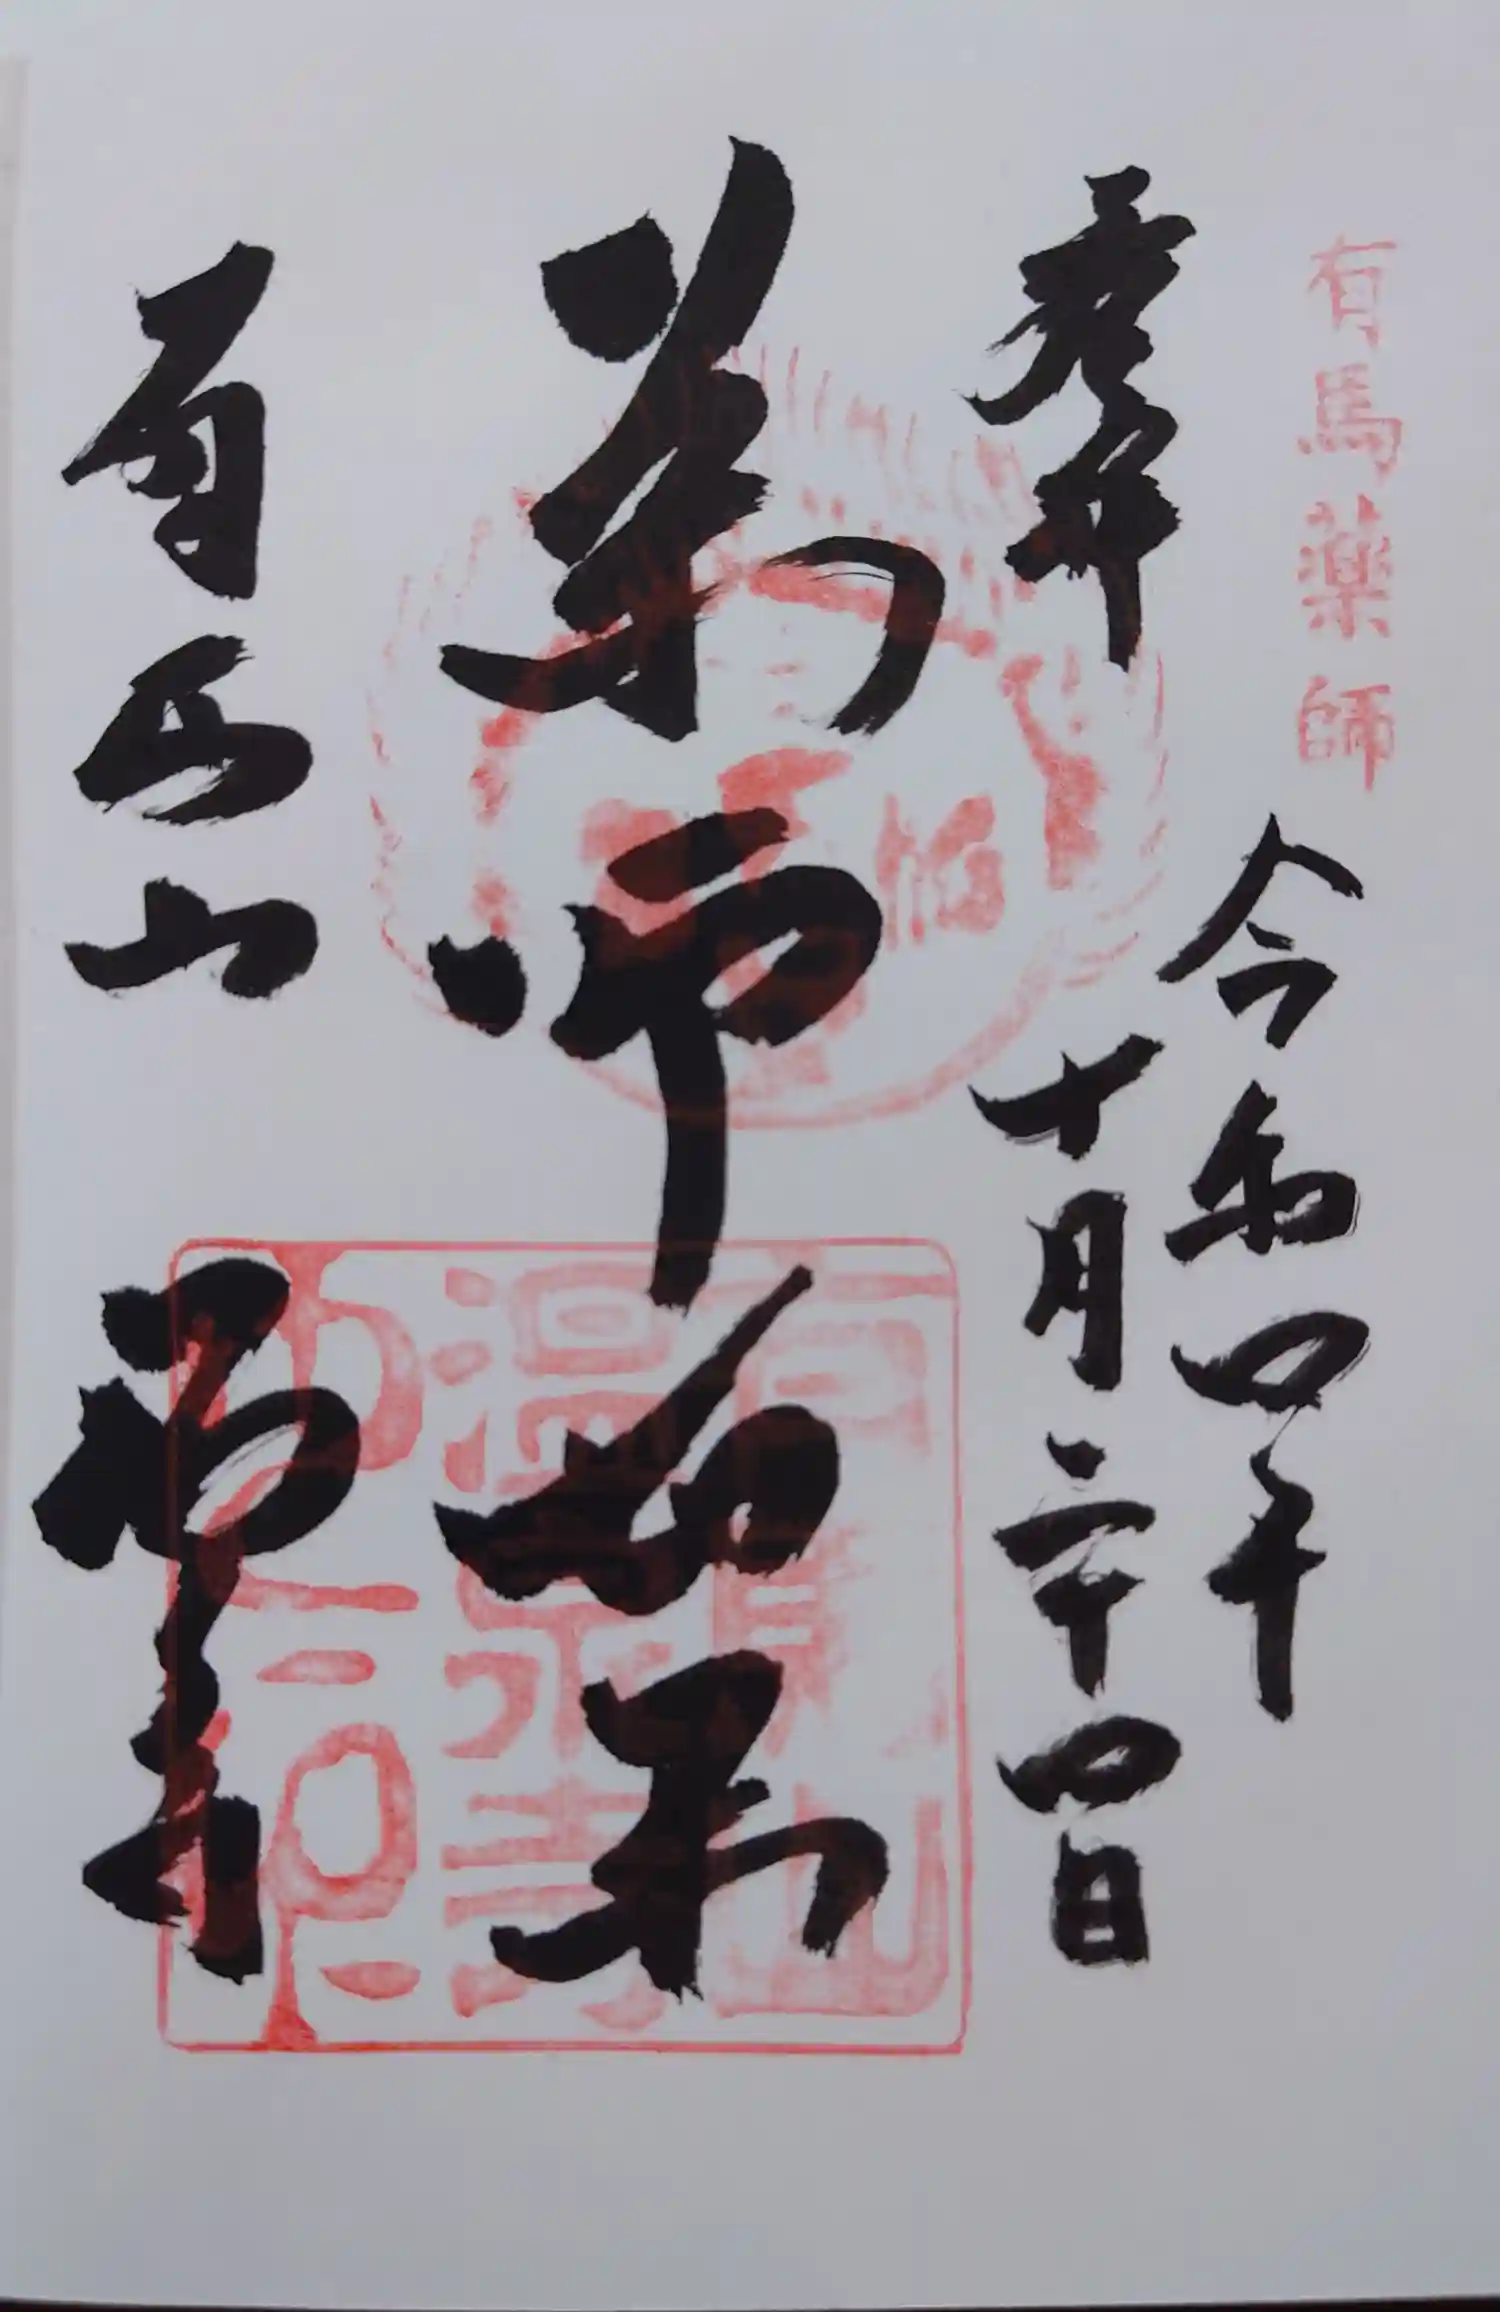 有馬薬師
令和四年
奉拝
十月二十四日
薬師如来
有馬山
温泉寺